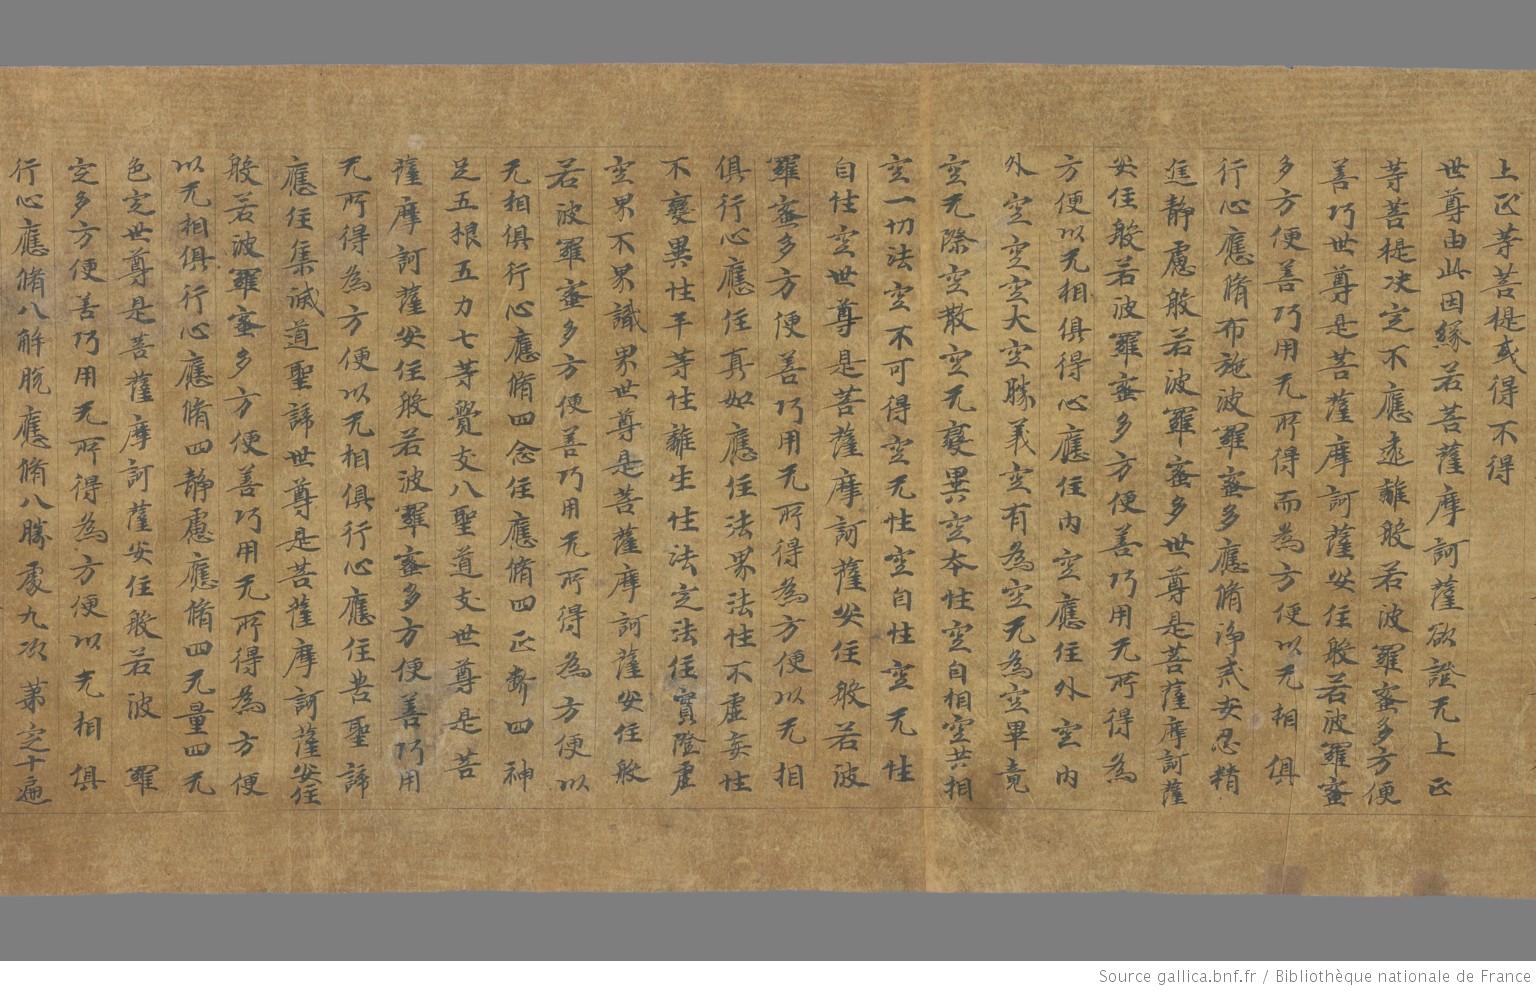 上正等菩提或得不得
世尊由此因緣若菩薩摩訶薩欲證无上正
等菩提决定不應遠離般若波羅蜜多方便
善巧世尊是菩薩摩訶薩安住般若波羅蜜
多方便善巧用无所得而為方便以无相俱
行心應脩布施波羅蜜多應脩净戒安忍精
進静慮般若波羅蜜多世尊是菩薩摩訶薩
安住般若波羅蜜多方便善巧用无所得為
方便以无相俱得心應住內空應住外空內
外空空空大空勝義空有為空无為空畢竟
空无際空散空无變異空本性空自相空共相
空一切法空不可得空无性空自性空无性
自性空世尊是菩薩摩訶薩安住般若波
羅蜜多方便善巧用无所得為方便以无相
俱行心應住真如應住法界法性不虛妄性
不變異性平等性離生性法定法住實際虛
空界不思議界世尊是菩薩摩訶薩安住般
若波羅蜜多方便善巧用无所得為方便以
无相俱行心應脩四念住應脩四正斷四神
足五根五力七等覺支八聖道支世尊是菩
薩摩訶薩安住般若波羅蜜多方便善巧用
无所得為方便以无相俱行心應住苦聖諦
應住集滅道聖諦世尊是菩薩摩訶薩安住
般若波羅蜜多方便善巧用无所得為方便
以无相俱行心應脩四静慮應脩四无量四无
色定世尊是菩薩摩訶薩安住般若波羅
蜜多方便善巧用无所得為方便以无相俱
行心應脩八解脫應脩八勝處九次苐定十遍
Source gallica.bnf.fr / Bibliothèque nationale de France